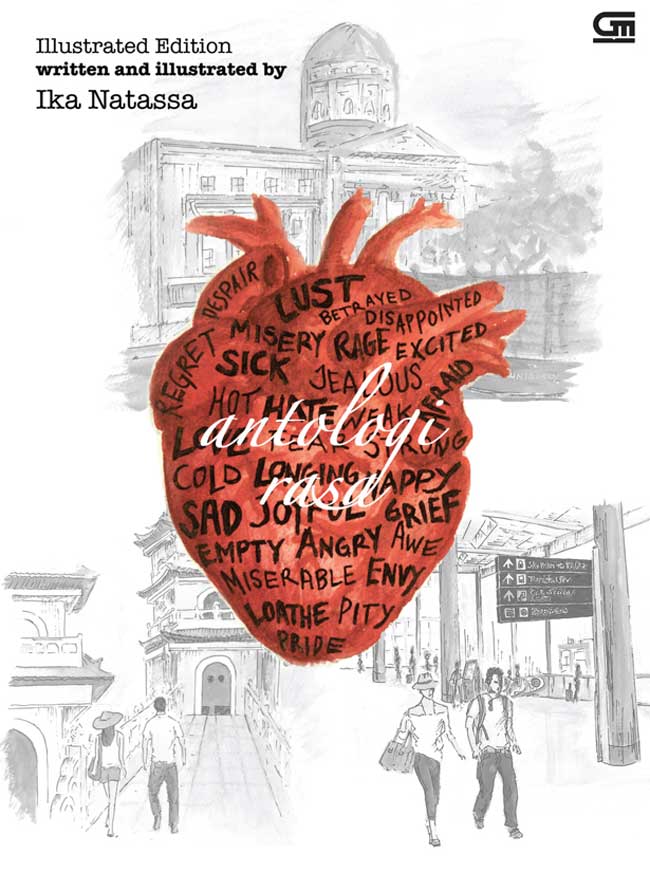 Illustrated Edition
written and illustrated by
Ika Natassa
GM
DESPAIR
LUST
BETRAYED
DISAPPOINTED
REGRET
MISERY RAGE EXCITED
SICK JEALOUS
AFRAID
HOT HATE WEAK
antologi
LOVE FEAR STRONG
COLD LONGING HAPPY
rasa
SAD JOYFUL GRIEF
EMPTY ANGRY AWE
MISERABLE ENVY
LOATHE PITY
PRIDE